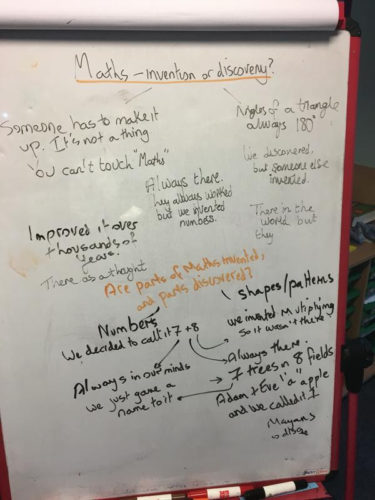 Maths – invention or discovery?
Someone has to make it
up. It's not a thing
You can't touch "Maths"
Angles of a triangle
always 180°
We discovered,
but someone else
invented.
Always there.
hey always worked
but we invented
numbers.
There in the
world but
they
Improved it over
thousands of
years.
There as a thought
Are parts of Maths invented,
and parts discovered?
Numbers
We decided to call it 7 + 8
Always in our minds
we just gave a
name to it
shapes/patterns
we invented Multiplying
so it wasn't there
Always there.
7 trees in 8 fields
Adam + Eve "a" apple
and we called it 1
Mayans